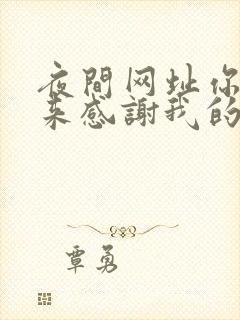 夜間网址你
来感謝我的
覃勇